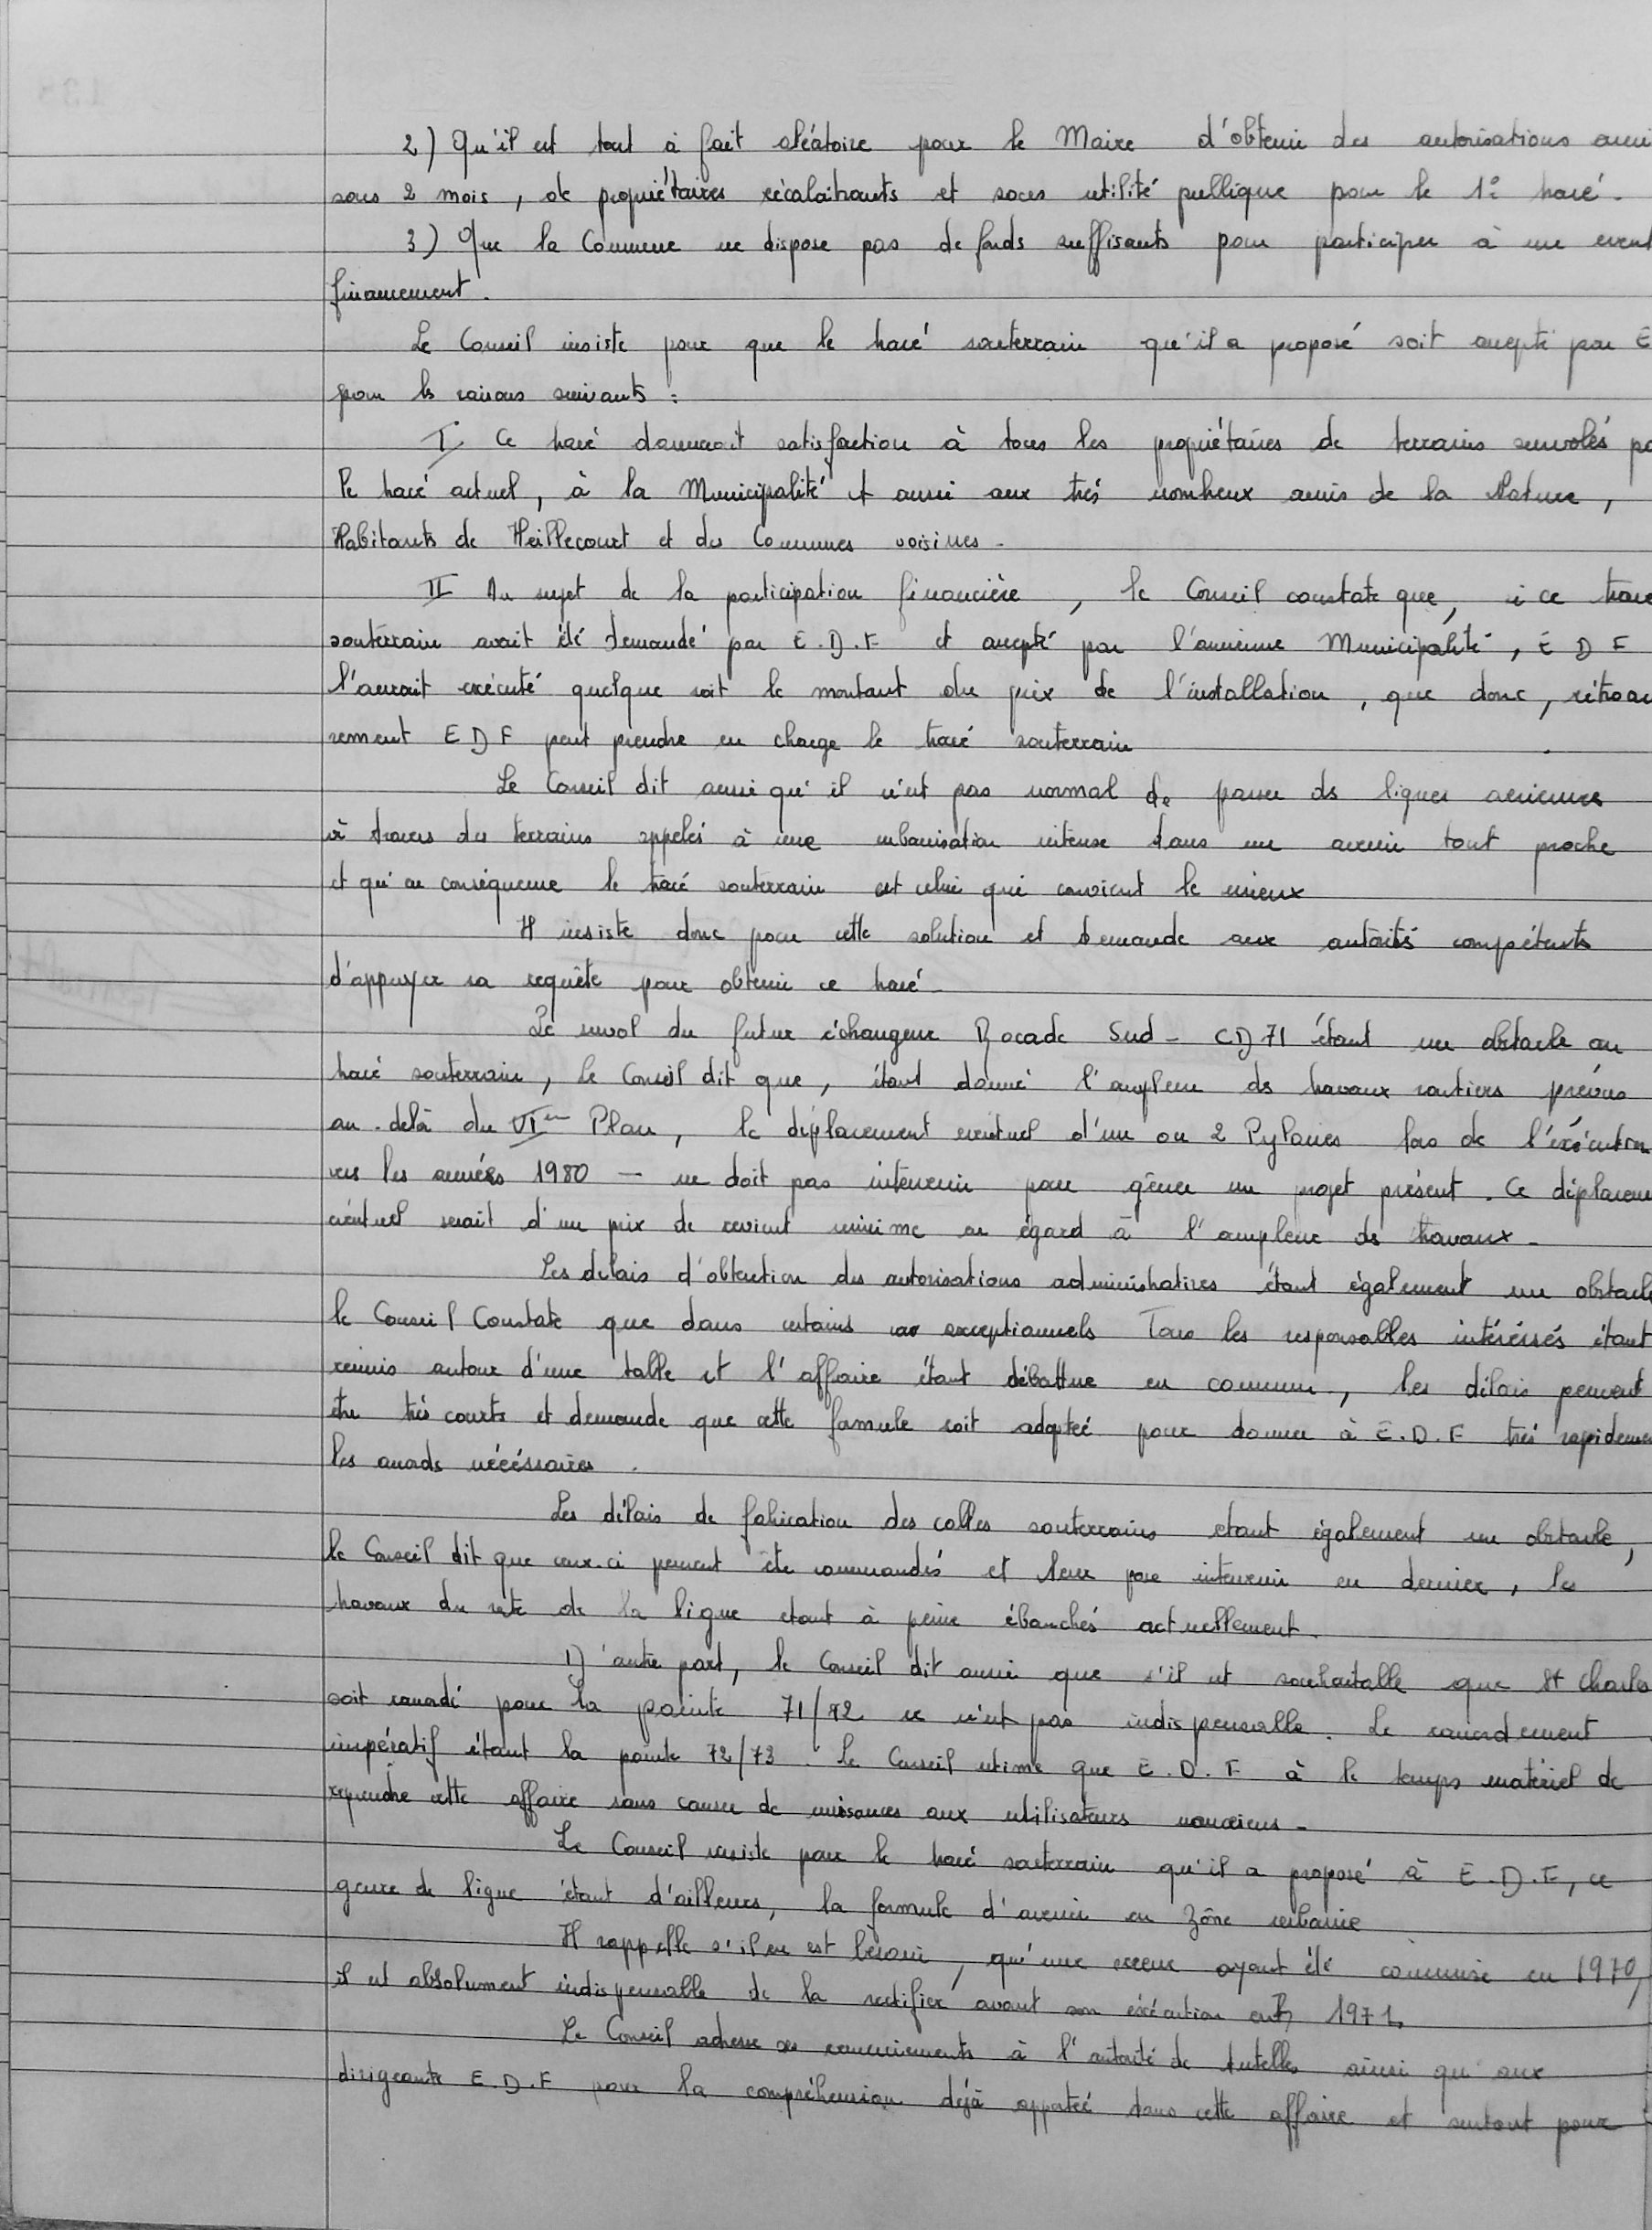 2) Qu'il est tout à fait aléatoire pour le Maire d'obtenir des autorisations
sous 2 mois, de propriétaires récalcitrants et sans utilité publique pour le 1° tracé.
3) Que la Commune ne dispose pas de fonds suffisants pour participer à un
financement.
Le Conseil insiste pour que le tracé souterrain qu'il a proposé soit accepté par E
pour les raisons suivants :
I Ce tracé donnerait satisfaction à tous les propriétaires de terrains survolés
le tracé actuel, à la Municipalité et aussi aux très nombreux amis de la Nature,
Habitants de Heillecourt et des Communes voisines -
II Au sujet de la participation financière, le Conseil constate que, si ce tracé
souterrain avait été demandé par E.D.F et accepté par l'ancienne Municipalité, E D F
l'aurait exécuté quelque soit le montant du prix de l'installation, que donc,
EDF peut prendre en charge le tracé souterrain
Le Conseil dit aussi qu'il n'est pas normal de passer des lignes aeriennes
à travers des terrains appelés à une urbanisation intense dans un avenir tout proche
et qu'en conséquence le tracé souterrain est celui qui convient le mieux
Il insiste donc pour cette solution et demande aux autorités compétents
d'appuyer sa requête pour obtenir ce tracé -
Le survol du futur échangeur Rocade Sud - CD 71 étant un obstacle au
tracé souterrain, le Conseil dit que, étant donné l'ampleur des travaux routiers prévus
au-delà du VIem Plan, le déplacement eventuel d'un ou 2 Pylones lors de l'éxécution
vers les années 1980 - ne doit pas intervenir pour gêner un projet présent. Ce
éventuel serait d'un prix de revient minime en égard à l'ampleur des travaux -
Les delais d'obtention des autorisations administratives étant également un
le Conseil Constate que dans certains cas exceptionnels Tous les responsables intéréssés étant
reunis autour d'une table et l'affaire étant débattue en commun, les délais peuvent
être très courts et demande que cette formule soit adoptée pour donner à E.D.F très
les accords nécéssaires.
Les délais de fabrication des cables souterrains etant également un obstacle,
le Conseil dit que ceux-ci peuvent être commandés et leur pose intervenir en dernier, les
travaux du reste de la ligne etant à peine ébauchés actuellement.
D'autre part, le Conseil dit aussi que s'il est souhaitable que St Charles
soit raccordé pour la pointe 71/72 ce n'est pas indispensable. Le raccordement
impératif étant la pointe 72/73. Le Conseil estime que E.D.F à le temps matériel de
reprendre cette affaire sans causer de nuisances aux utilisateurs nancéiens -
Le Conseil insiste pour le tracé souterrain qu'il a proposé à E.D.F, ce
genre de ligne étant d'ailleurs, la formule d'avenir en zône urbaine
Il rappelle s'il en est besoin, qu'une erreur ayant été commise en 1970,
il est absolument indispensable de la rectifier avant son éxécution en 1971.
Le Conseil adresse ses remerciements à l'autorité de tutelle ainsi qu'aux
dirigeants E.D.F pour la compréhension déjà apportée dans cette affaire et surtout pour